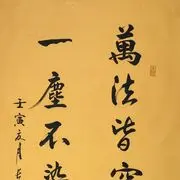 萬法皆空
一塵不染
壬寅夏月